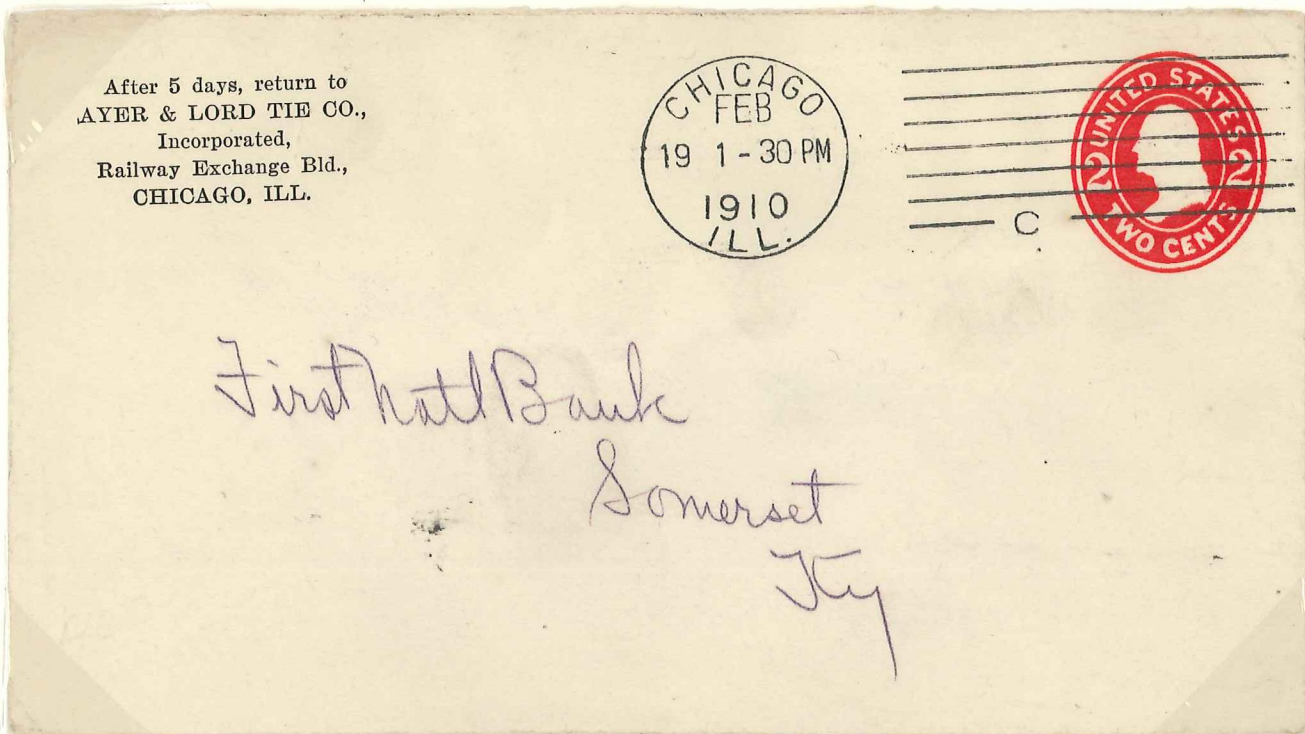 After 5 days, return to
AYER & LORD TIE CO.,
Incorporated,
Railway Exchange Bld.,
CHICAGO, ILL.
CHICAGO
FEB
19 1-30 PM
1910
ILL.
C
UNITED STATES
2 2
TWO CENTS
First Natl Bank
Somerset
Ky